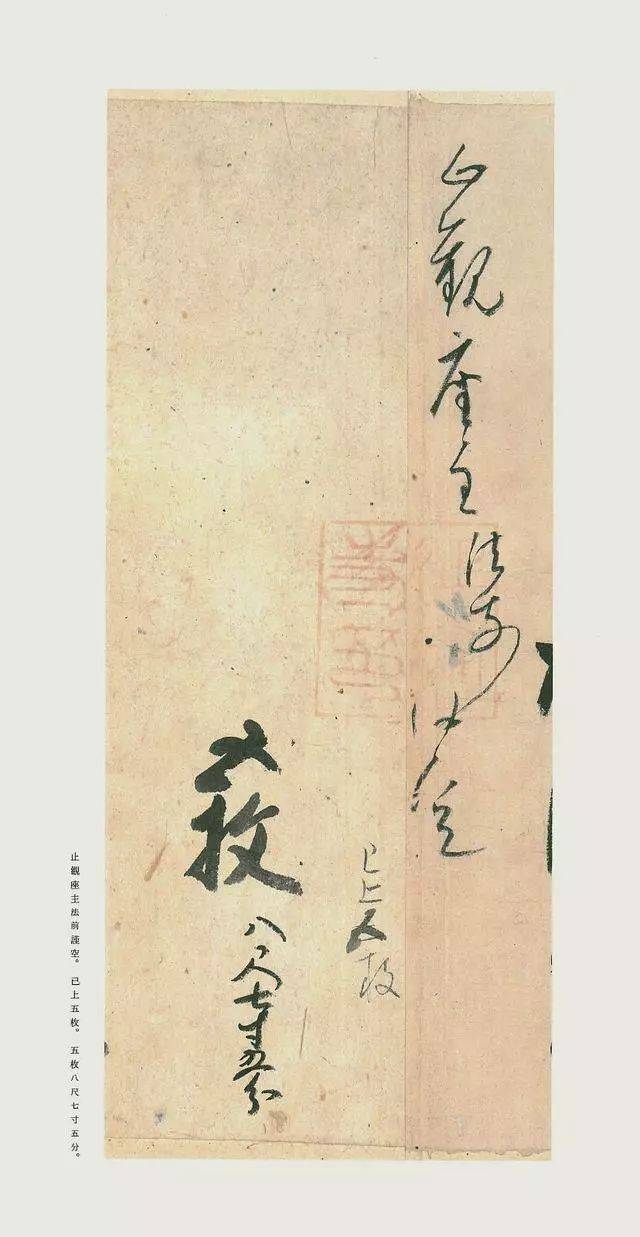 止觀座主法前謹空
已上五枚
五枚
八尺七寸五分
止觀座主法前謹空。已上五枚。五枚八尺七寸五分。